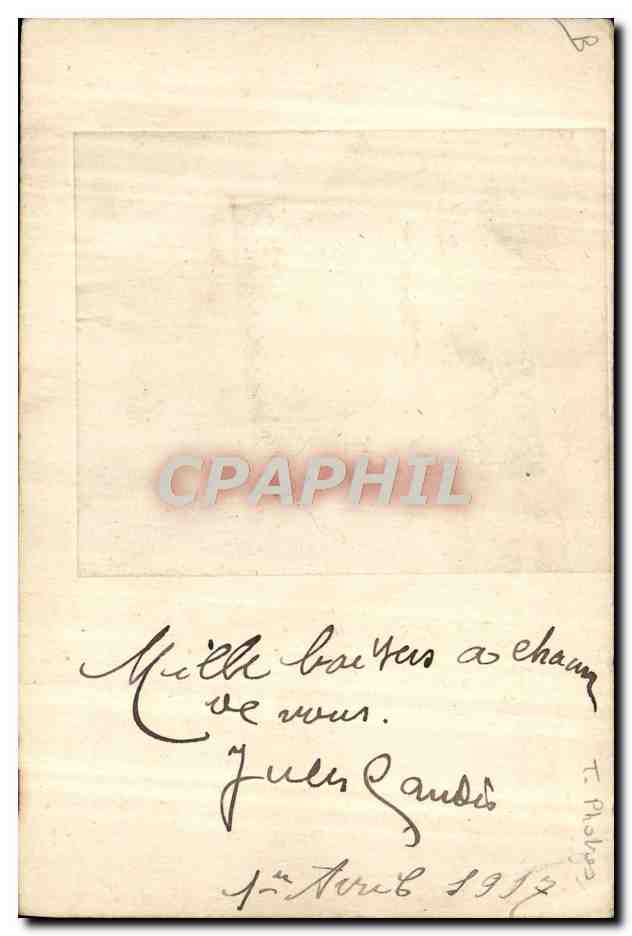 B
CPAPHIL
Mille baisers a chacun
de vous.
Jules
1er Avril 1917
T.